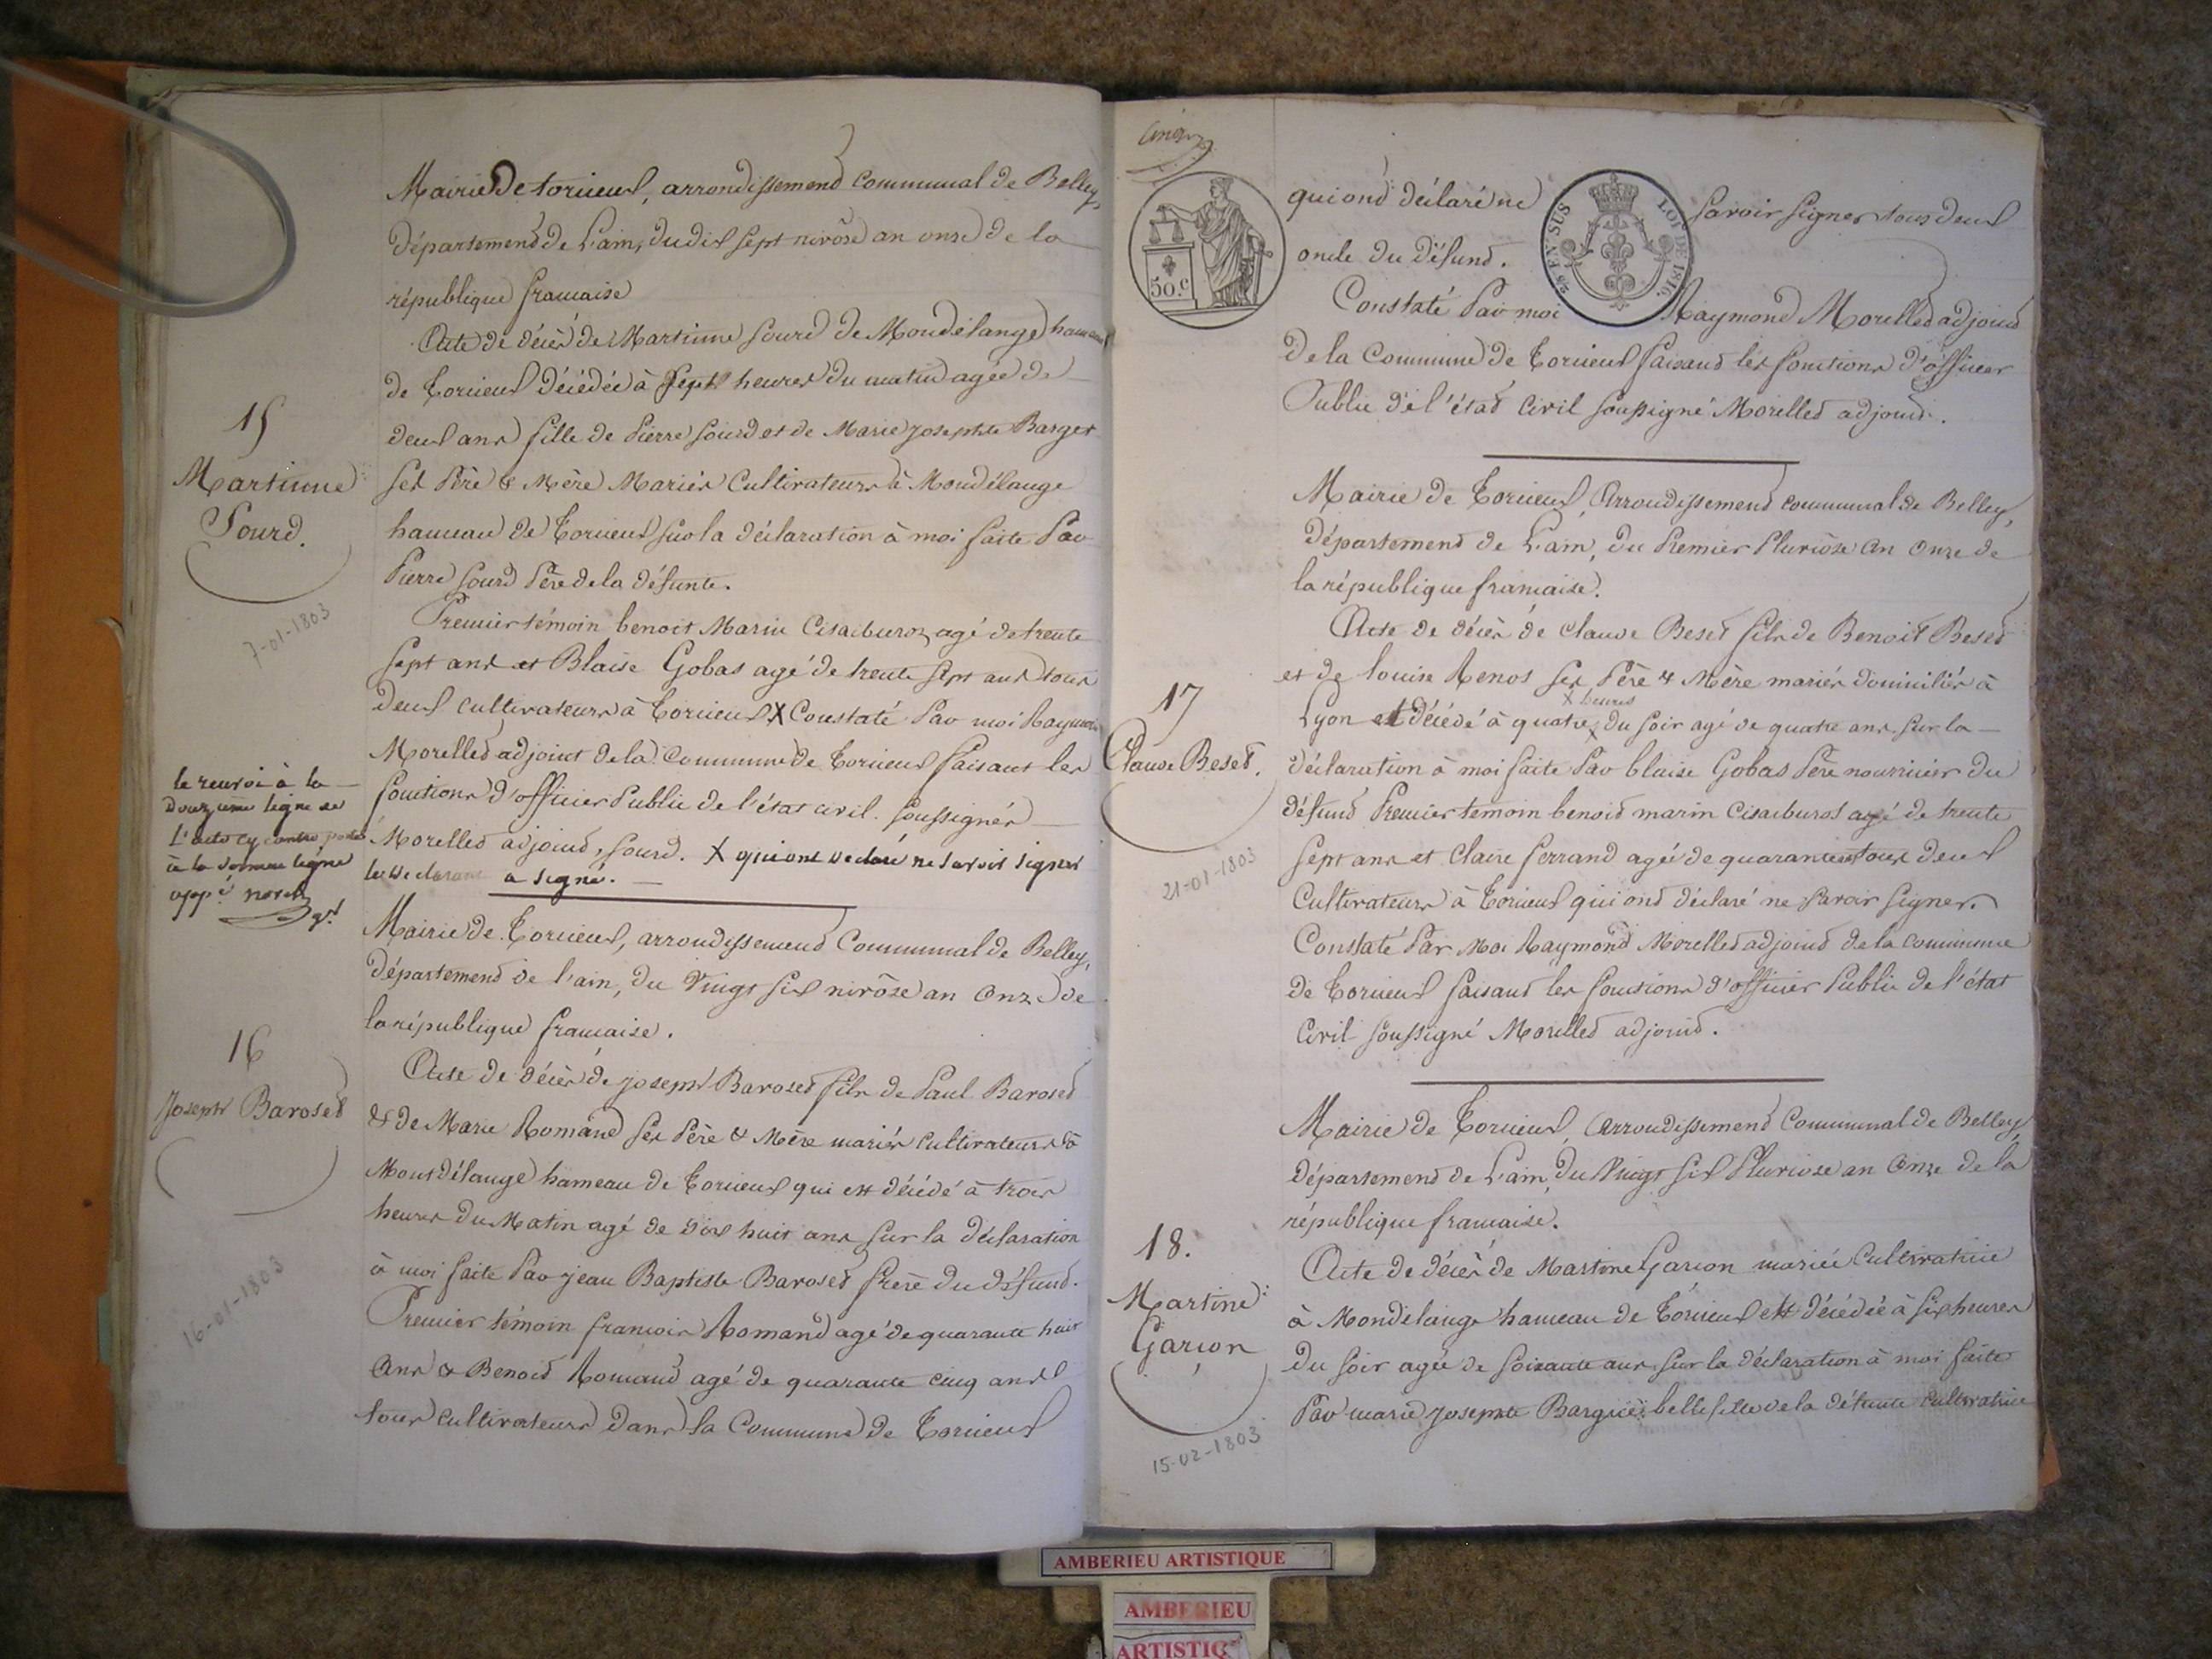 Mairie de torcieux, arrondissement communal de Belley,
département de L'ain, du dix sept nivôse an onze de la
république française
Acte de décès de Martinne sourd de Mondélange hameau
de Torcieux décédée à sept heures du matin agée de
deux ans fille de Pierre sourd et de Marie josephte Barget
ses Père & Mère Mariés Cultivateurs à Mondélange
hameau de Torcieux sur la déclaration à moi faite Par
Pierre sourd Père de la défunte.
Premier témoin benoit Marin Cisaiburoz agé de trente
sept ans et Blaise Gobas agé de trente sept ans tous
deux cultivateurs à Torcieux X Constaté Par moi Raymond
Morellet adjoint de la Commune de Torcieux faisant les
fonctions d'officier Public de l'état civil. soussignés
Morellet adjoint, sourd. X qui ont declaré ne savoir signer
le declarant a signé.
15
Martinne
Sourd.
7-01-1803
le renvoi à la
Douzieme ligne de
L'acte cy contre porté
à la
app.é
Mairie de Torcieux, arrondissement Communal de Belley,
département de l'ain, du Vingt six nivôse an Onze de
la république française.
Acte de décès de joseph Baroset fils de Paul Baroset
& de Marie Romand ses Père & Mère mariés cultivateurs à
Montdélange hameau de Torcieux qui est décédé à trois
heures du Matin agé de dix huit ans sur la déclaration
à moi faite Par jean Baptiste Baroset frère du défund.
Premier témoin françois Romand agé de quarante huit
Ans & Benoid Romand agé de quarante cinq ans
tous cultivateurs dans la Commune de Torcieux
16
Joseph Baroset
16-01-1803
50.c
EN SUS
LOI DE 1816
qui ont déclaré ne savoir signer tous deux
oncle du défund.
Constaté Par moi Raymond Morellet adjoind
de la Commune de Torcieux faisand les fonctions d'officier
Public de l'étad Civil soussigné Morellet adjoind.
Mairie de Torcieux, Arrondissement communal de Belley,
département de L'ain, du Premier Pluviôse An Onze de
la république française.
Acte de décès de claude Beset fils de Benoit Beset
et de louise Renos ses Père & Mère mariés domiciliés à
X heures
Lyon est décédé à quatre X du soir agé de quatre ans sur la
déclaration à moi faite Par blaise Gobas Père nourricier du
défund Premier temoin benoid marin Cisaiburot agé de trente
sept ans et Claire ferrand agée de quarante tous deux
Cultivateurs à Torcieux qui ond déclaré ne savoir signer.
Constaté Par Moi Raymond Morellet adjoind de la commune
de Torcieux faisand les fonctions d'officier Public de l'état
Civil soussigné Morellet adjoind.
17
Claude Beset.
21-01-1803
Mairie de Torcieux, Arrondissement Communal de Belley,
département de L'ain, du Vingt six Pluviose an Onze de la
république française.
Acte de décès de Martine Garçon mariée Cultivatrice
à Mondélange hameau de Torcieux est décédée à six heures
du soir agée de soixante ans sur la déclaration à moi faite
Par marie josephte Barguet belle fille de la défunte cultivatrice
18.
Martine
Garçon
15-02-1803
AMBERIEU ARTISTIQUE
AMBERIEU
ARTISTIQ